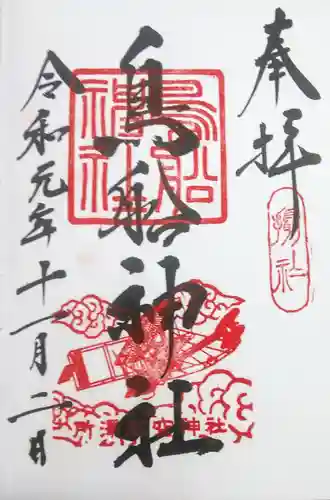 奉拝
摂社
鳥船神社
鳥船神社
令和元年十一月二日